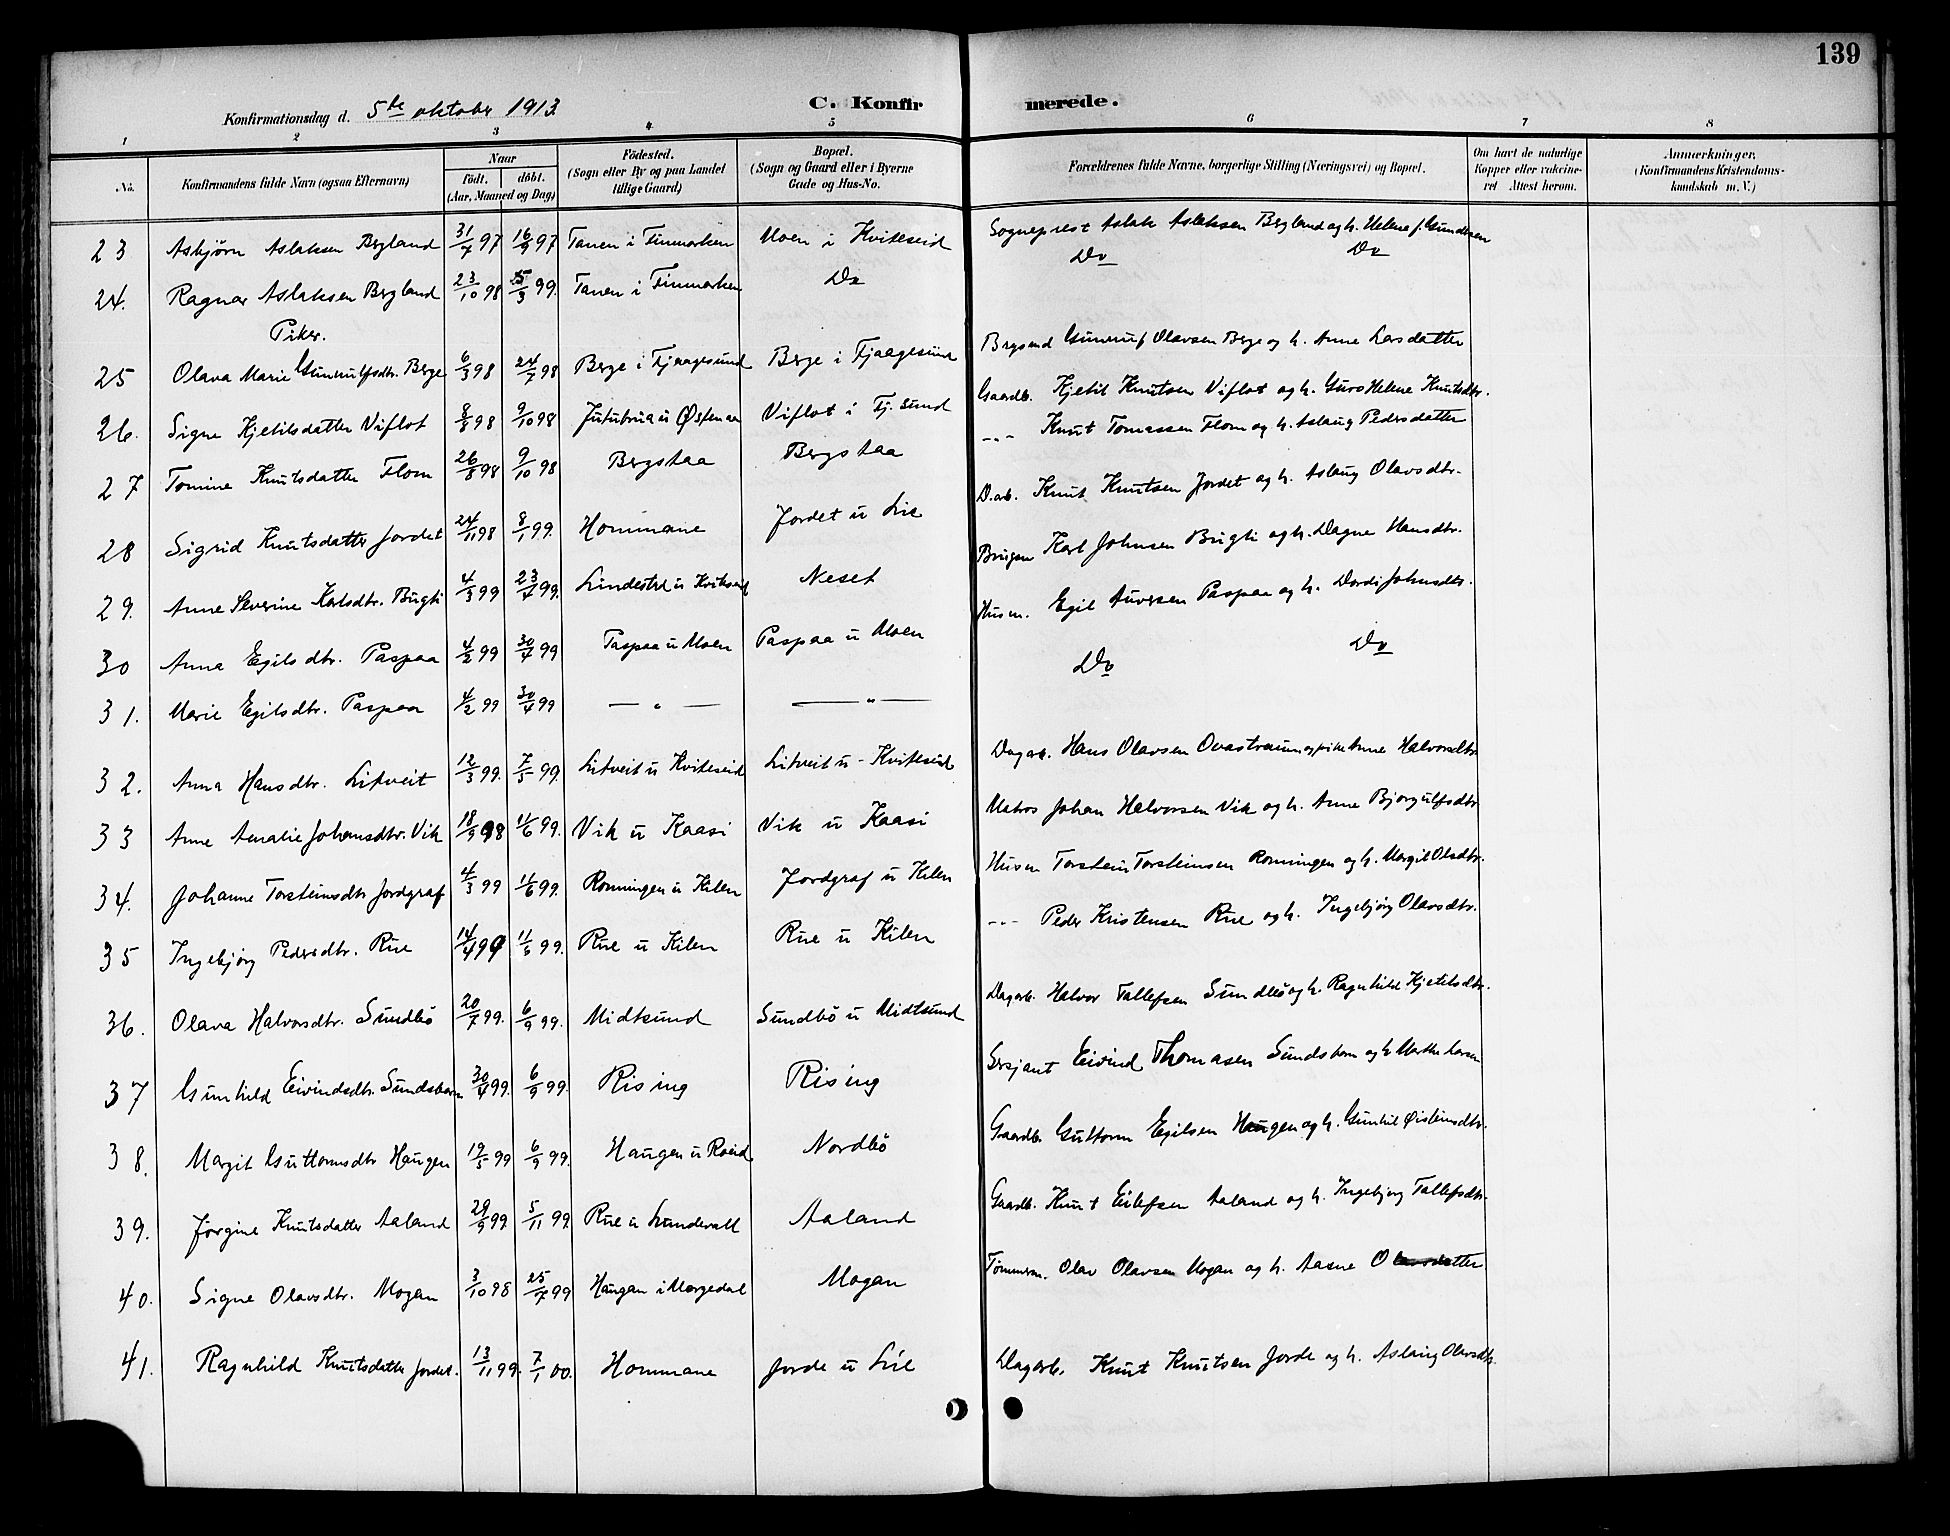 139
Konfirmationsdag d. 5te oktober 1913
C. Konfirmerede.
1 2 3 4 5 6 7 8
No. Konfirmandens fulde Navn (ogsaa Efternavn) Naar födt. döbt. (Aar, Maaned og Dag) Födested. (Sogn eller By og paa Landet tillige Gaard) Bopæl. (Sogn og Gaard eller i Byerne Gade og Hus-No. Forældrenes fulde Navne, borgerlige Stilling (Næringsvei) og Bopæl. Om havt de naturlige Kopper eller vaccineret Attest herom. Anmærkninger. (Konfirmandens Kristendomskundskab m. V.)
23 Asbjörn Aslaksen Bergland 31/7 97 16/9 97 Tanen i Finmarken Moen i Kviteseid Sogneprest Aslak Aslaksen Bergland og h. Helene f. Gundesen
24. Ragnar Aslaksen Bergland 23/10 98 5/3 99. Tanen i Finmarken Do Do Do
Piker.
25 Olava Marie Gunnulfsdtr. Berge 6/3 98 24/7 98 Berge i Fjaagesund Berge i Fjaagesund Brgsmd Gunnuf Olavsen Berge og h. Anne Larsdatter
26. Signe Kjetilsdatter Viflot 8/8 98 9/10 98 Viflot i Fj. sund Gaardb. Kjetil Knutsen Viflot og h. Guro Helene Knutsdtr.
27 Tomine Knutsdatter Flom 26/8 98 9/10 98 Bergstaa Bergstaa --- Knut Tomassen Flom og h. Aslaug Pedersdatter
28 Sigrid Knutsdatter Jordet 24/11 98 8/1 99. Hommane Jordet u Lie D.arb. Knut Knutsen Jordet og h. Aslaug Olavsdtr.
29. Anne Severine Karlsdtr. Bugti 4/3 99 23/7 99. Lindestad u Kviteseid Neset Karl Johnsen Bugti og h. Dagne Hansdtr.
30 Anna Egilsdtr. Paspaa 4/2 99 30/4 99 Paspaa u Moen Paspaa u Moen Husm. Egil Auversen Paspaa og h. Dordi Johnsdtr.
31. Marie Egilsdtr. Paspaa 4/2 99 30/4 99 — " — — " — Do Do
32. Anna Hansdtr. Litveit 12/3 99. 7/5 99. Litveit u Kviteseid Litveit u - Kviteseid Dagarb. Hans Olavsen Ovastraum og pike Anne Halvorsdtr
33 Anne Amalie Johansdtr. Vik 18/9 98 11/6 99. Vik u Kaasi Vik u Kaasi Matros Johan Halvorsen Vik og h. Anne Bjorgulfsdtr
34. Johanne Torsteinsdtr Jordgraf 4/3 99 11/6 99. Ronningen u Kilen Jordgraf u Kilen Husm Torstein Torsteinsen Ronningen og h. Margit Olsdtr.
35 Ingebjörg Pedersdtr. Rue 14/4 99 11/6 99. Rue u Kilen Rue u Kilen --- Peder Kristensen Rue og h. Ingebjörg Olavsdtr.
36. Olava Halvorsdtr. Sundbö 20/7 99. 6/9 99. Midtsund Sundbö u Midtsund Dagarb. Halvor Tallefsen Sundbö og h. Ragnhild Kjetilsdtr.
37 Gunhild Eivindsdtr. Sundsbarm 30/4 99. 6/9 99. Rising Rising Sersjant Eivind Thomasen Sundsbarm og h Marthe Larsen
38. Margit Guttormsdtr Haugen 19/5 99 6/9 99. Haugen u Roeid Nordbö Gaardb. Guttorm Egilsen Haugen og h. Gunhil Øisteinsdtr.
39. Jorgine Knutsdatter Aaland 29/9 99. 5/11 99. Rue u Lundevall Aaland Gaardb. Knut Eilefsen Aaland og h. Ingebjorg Tallefsdtr.
40. Signe Olavsdtr. Mogan 3/10 98 25/7 99 Haugan i Morgedal Mogan Tömmerm. Olav Olavsen Mogan og h. Aasne Olavsdatter
41. Ragnhild Knutsdatter Jordet. 13/11 99. 7/1 00. Hommane Jorde u Lie Dagarb. Knut Knutsen Jorde og h. Aslaug Olavsdtr.